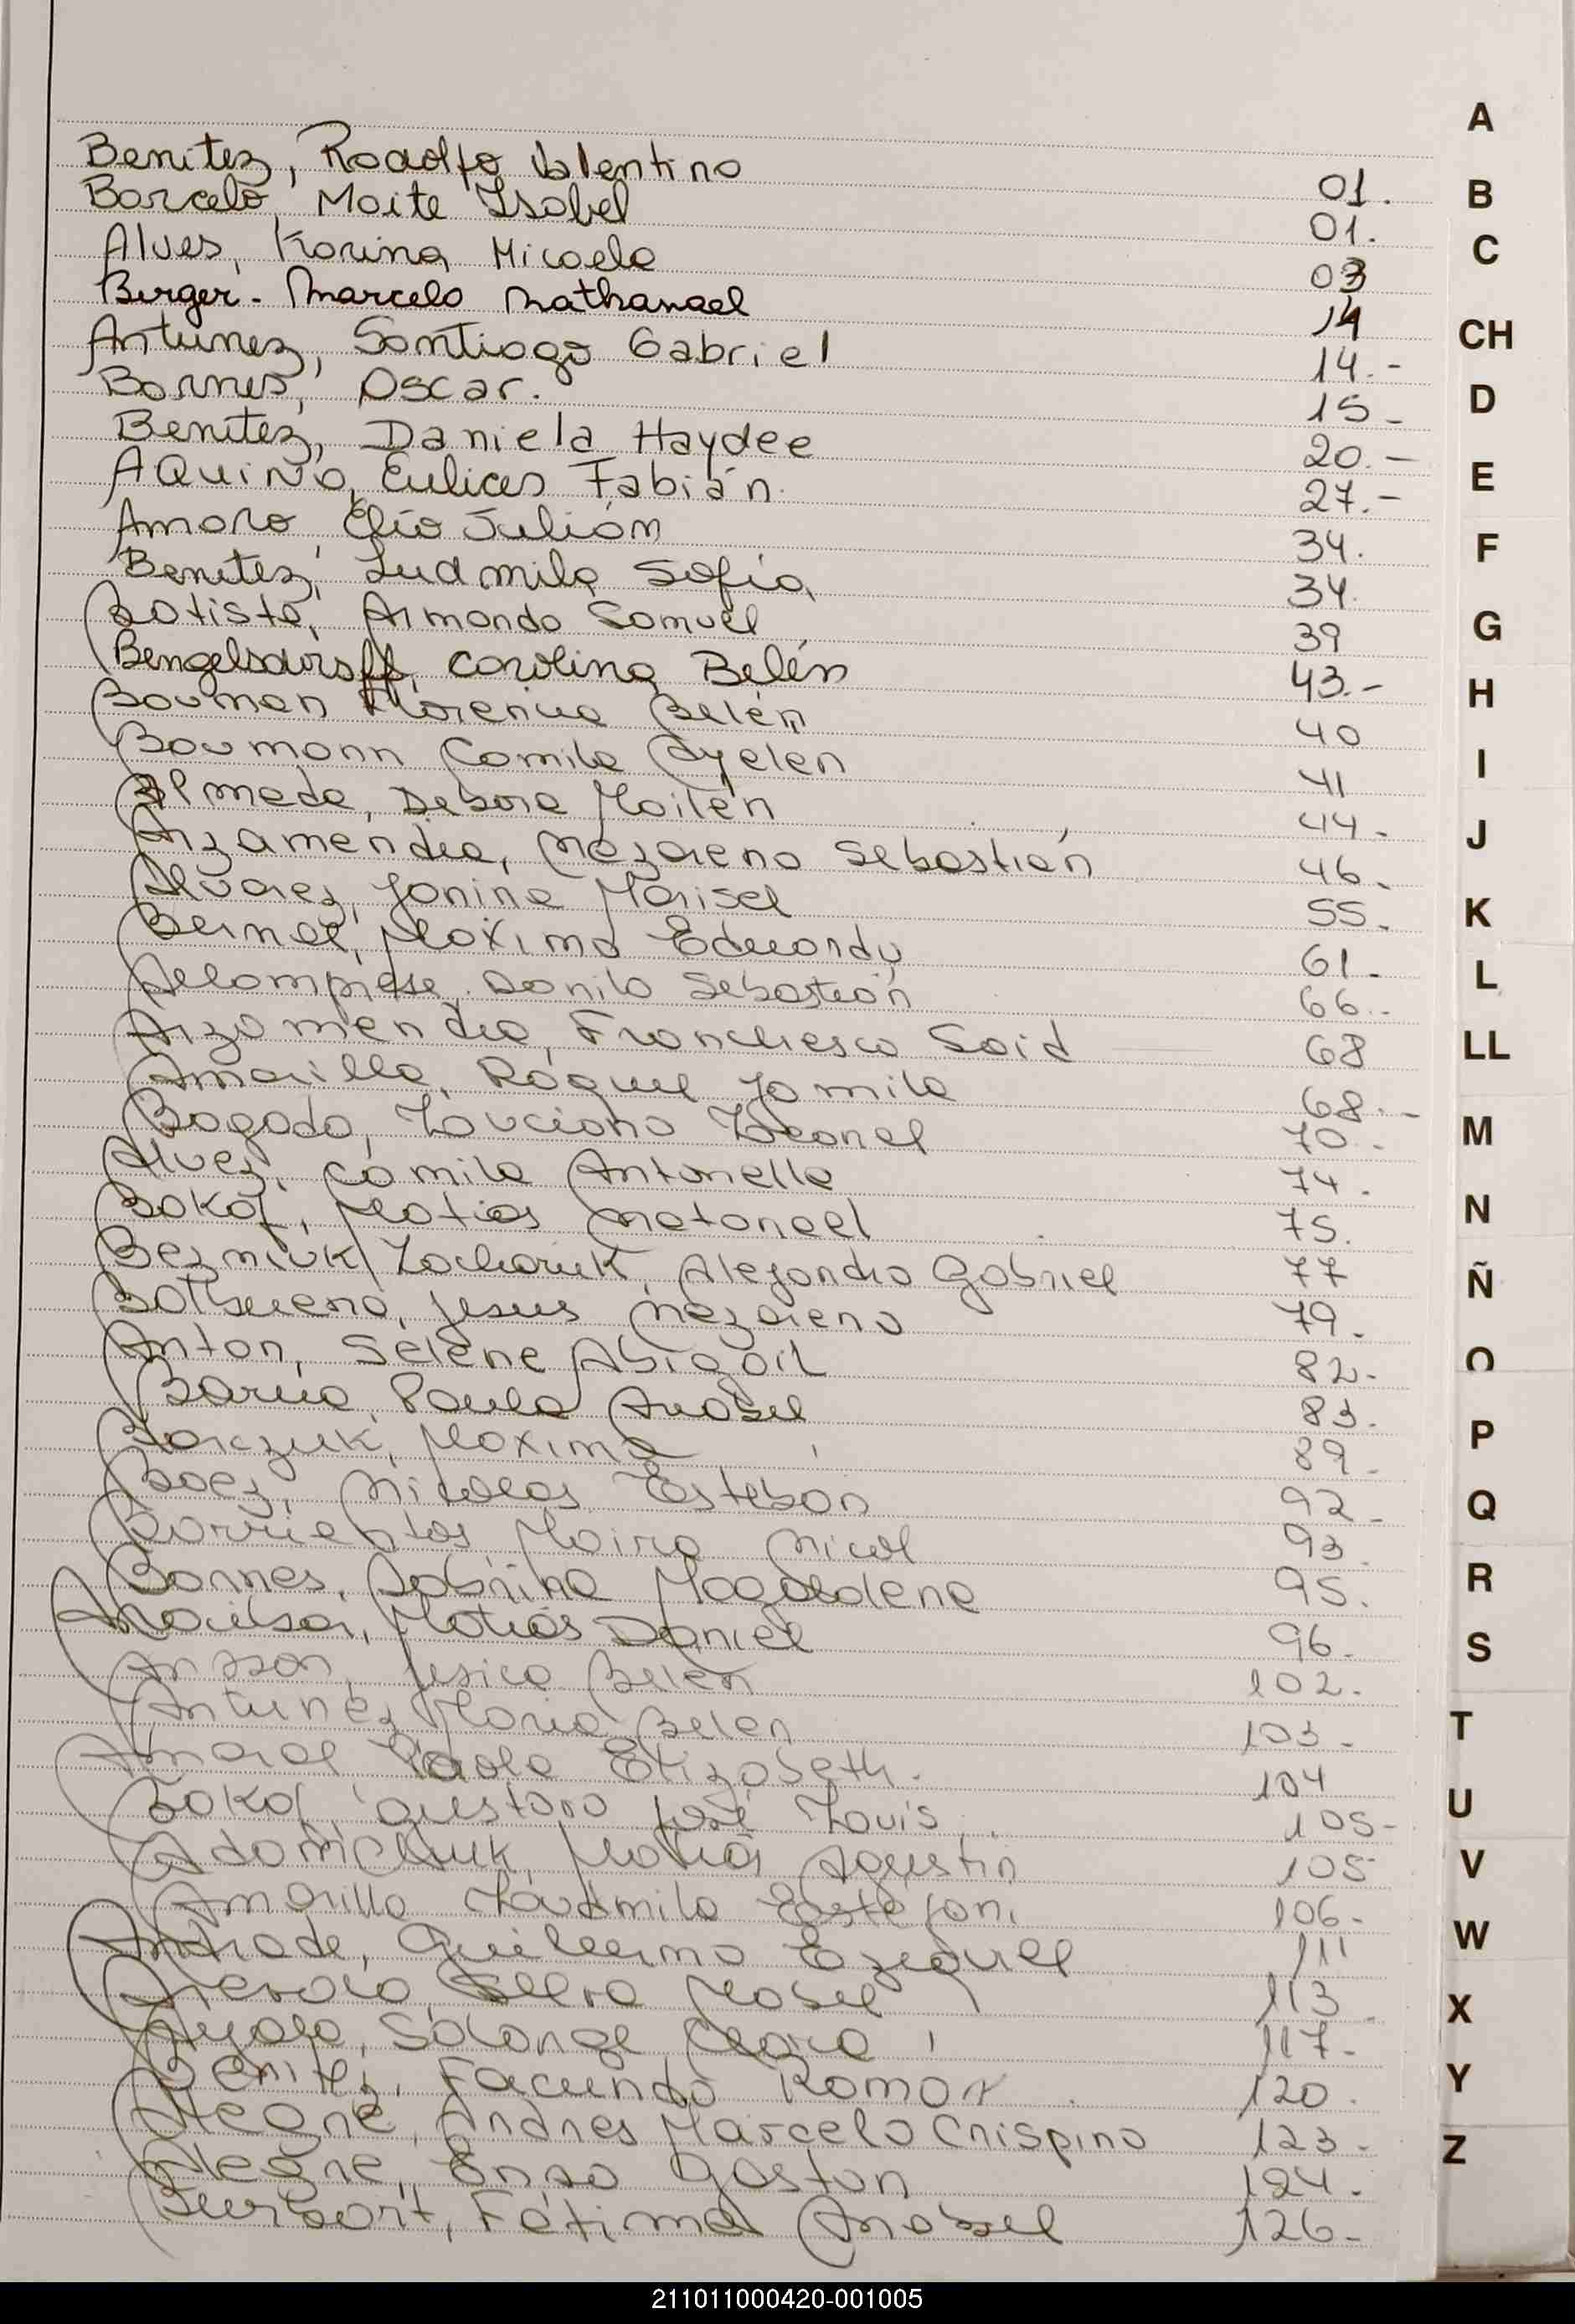 Benitez, Rodolfo Valentino 01.
Barcelo, Maite Isabel 01.
Alves, Karina Micaela 03
Berger - Marcelo Nathanael 14
Antunez, Santiago Gabriel 14.-
Barnes, Oscar. 15-
Benitez, Daniela Haydee 20.-
AQuiNo, Eulices Fabián. 27.-
Amaro, Elio Julián 34.
Benitez, Ludmila Sofia, 34.
Batista, Armando Samuel 39
Bengelsdorff, Carolina Belén 43.-
Bauman Florencia Belén 40
Baumann Camila Ayelén 41
Almada, Debora Mailén 44.
Arzamendia, Nazareno Sebastián 46.
Alvarez, Janina Marisel 55.
Bernal, Maximo Eduardo 61.
Allamprese, Danilo Sebastián 66.
Arzamendia, Franchesco Said 68
Amarilla, Raquel Yamila 68.-
Bogado, Lauciano Leonel 70.
Alvez, Camila Antonella 74.
Bokof, Matias Natanael 75.
Bezniuk Zacharuk, Alejandro Gabriel 77
Balbuena, Jesus Nazareno 79.
Anton, Selene Abigail 82.
Barua, Paula Anabel 83.
Barczuk, Maxima 89.
Baez, Nicolas Esteban 92.
Barrientos, Maira Nicol 93.
Barnes, Sabrina Magdalena 95.
Matias Daniel 96.
Jesica Belén 102.
Antunez Maria Belen 103.
Amaral Paola Elizabeth. 104
Bokof, Gustavo José Louis 105-
Adamchuk, Matias Agustin 105
Amarilla Laudmila Estefani 106.
Andrade, Guillermo Ezequiel 111
Mabel 113
Ayala, Solange Clara 117.
Benitez, Facundo Ramon 120.
Alegre, Andres Marcelo Crispino 123.
Alegre, Enzo Gaston 124.
Fátima Anabel 126.
A
B
C
CH
D
E
F
G
H
I
J
K
L
LL
M
N
Ñ
O
P
Q
R
S
T
U
V
W
X
Y
Z
211011000420-001005